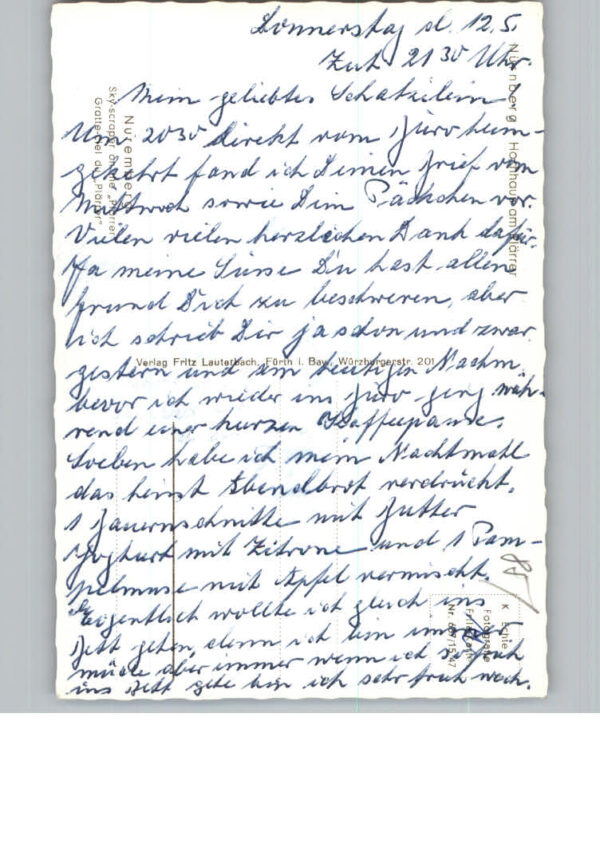 Donnerstag d. 12.5.
Zeit 21 30 Uhr.
Mein geliebtes Schatzilein!
Um 20 30 direkt vom Büro heim-
gekehrt fand ich Deinen Brief vom
Mittwoch sowie Dein Päckchen vor.
Vielen vielen herzlichen Dank dafür.
Ja meine Süsse Du hast allen
Grund Dich zu beschweren, aber
ich schrieb Dir ja schon und zwar
gestern und am heutigen Nachm.
bevor ich wieder ins Büro ging wäh-
rend einer kurzen Kaffeepause.
Soeben habe ich mein Nachtmahl
das heisst Abendbrot verdrückt.
1 Bauernschnitte mit Butter
Joghurt mit Zitrone und 1 Pam-
pelmuse mit Apfel vermischt.
Eigentlich wollte ich gleich ins
Bett gehen, denn ich bin immer
müde aber immer wenn ich so früh
ins Bett gehe bin ich sehr früh wach.
Nürnberg Hochhaus am Plärrer
Nuremberg
Sky-scraper on the "Plärrer"
Gratte-ciel du "Plärrer"
Verlag Fritz Lauterbach, Fürth i. Bay., Würzburgerstr. 201
Nr. 667/15/47
85